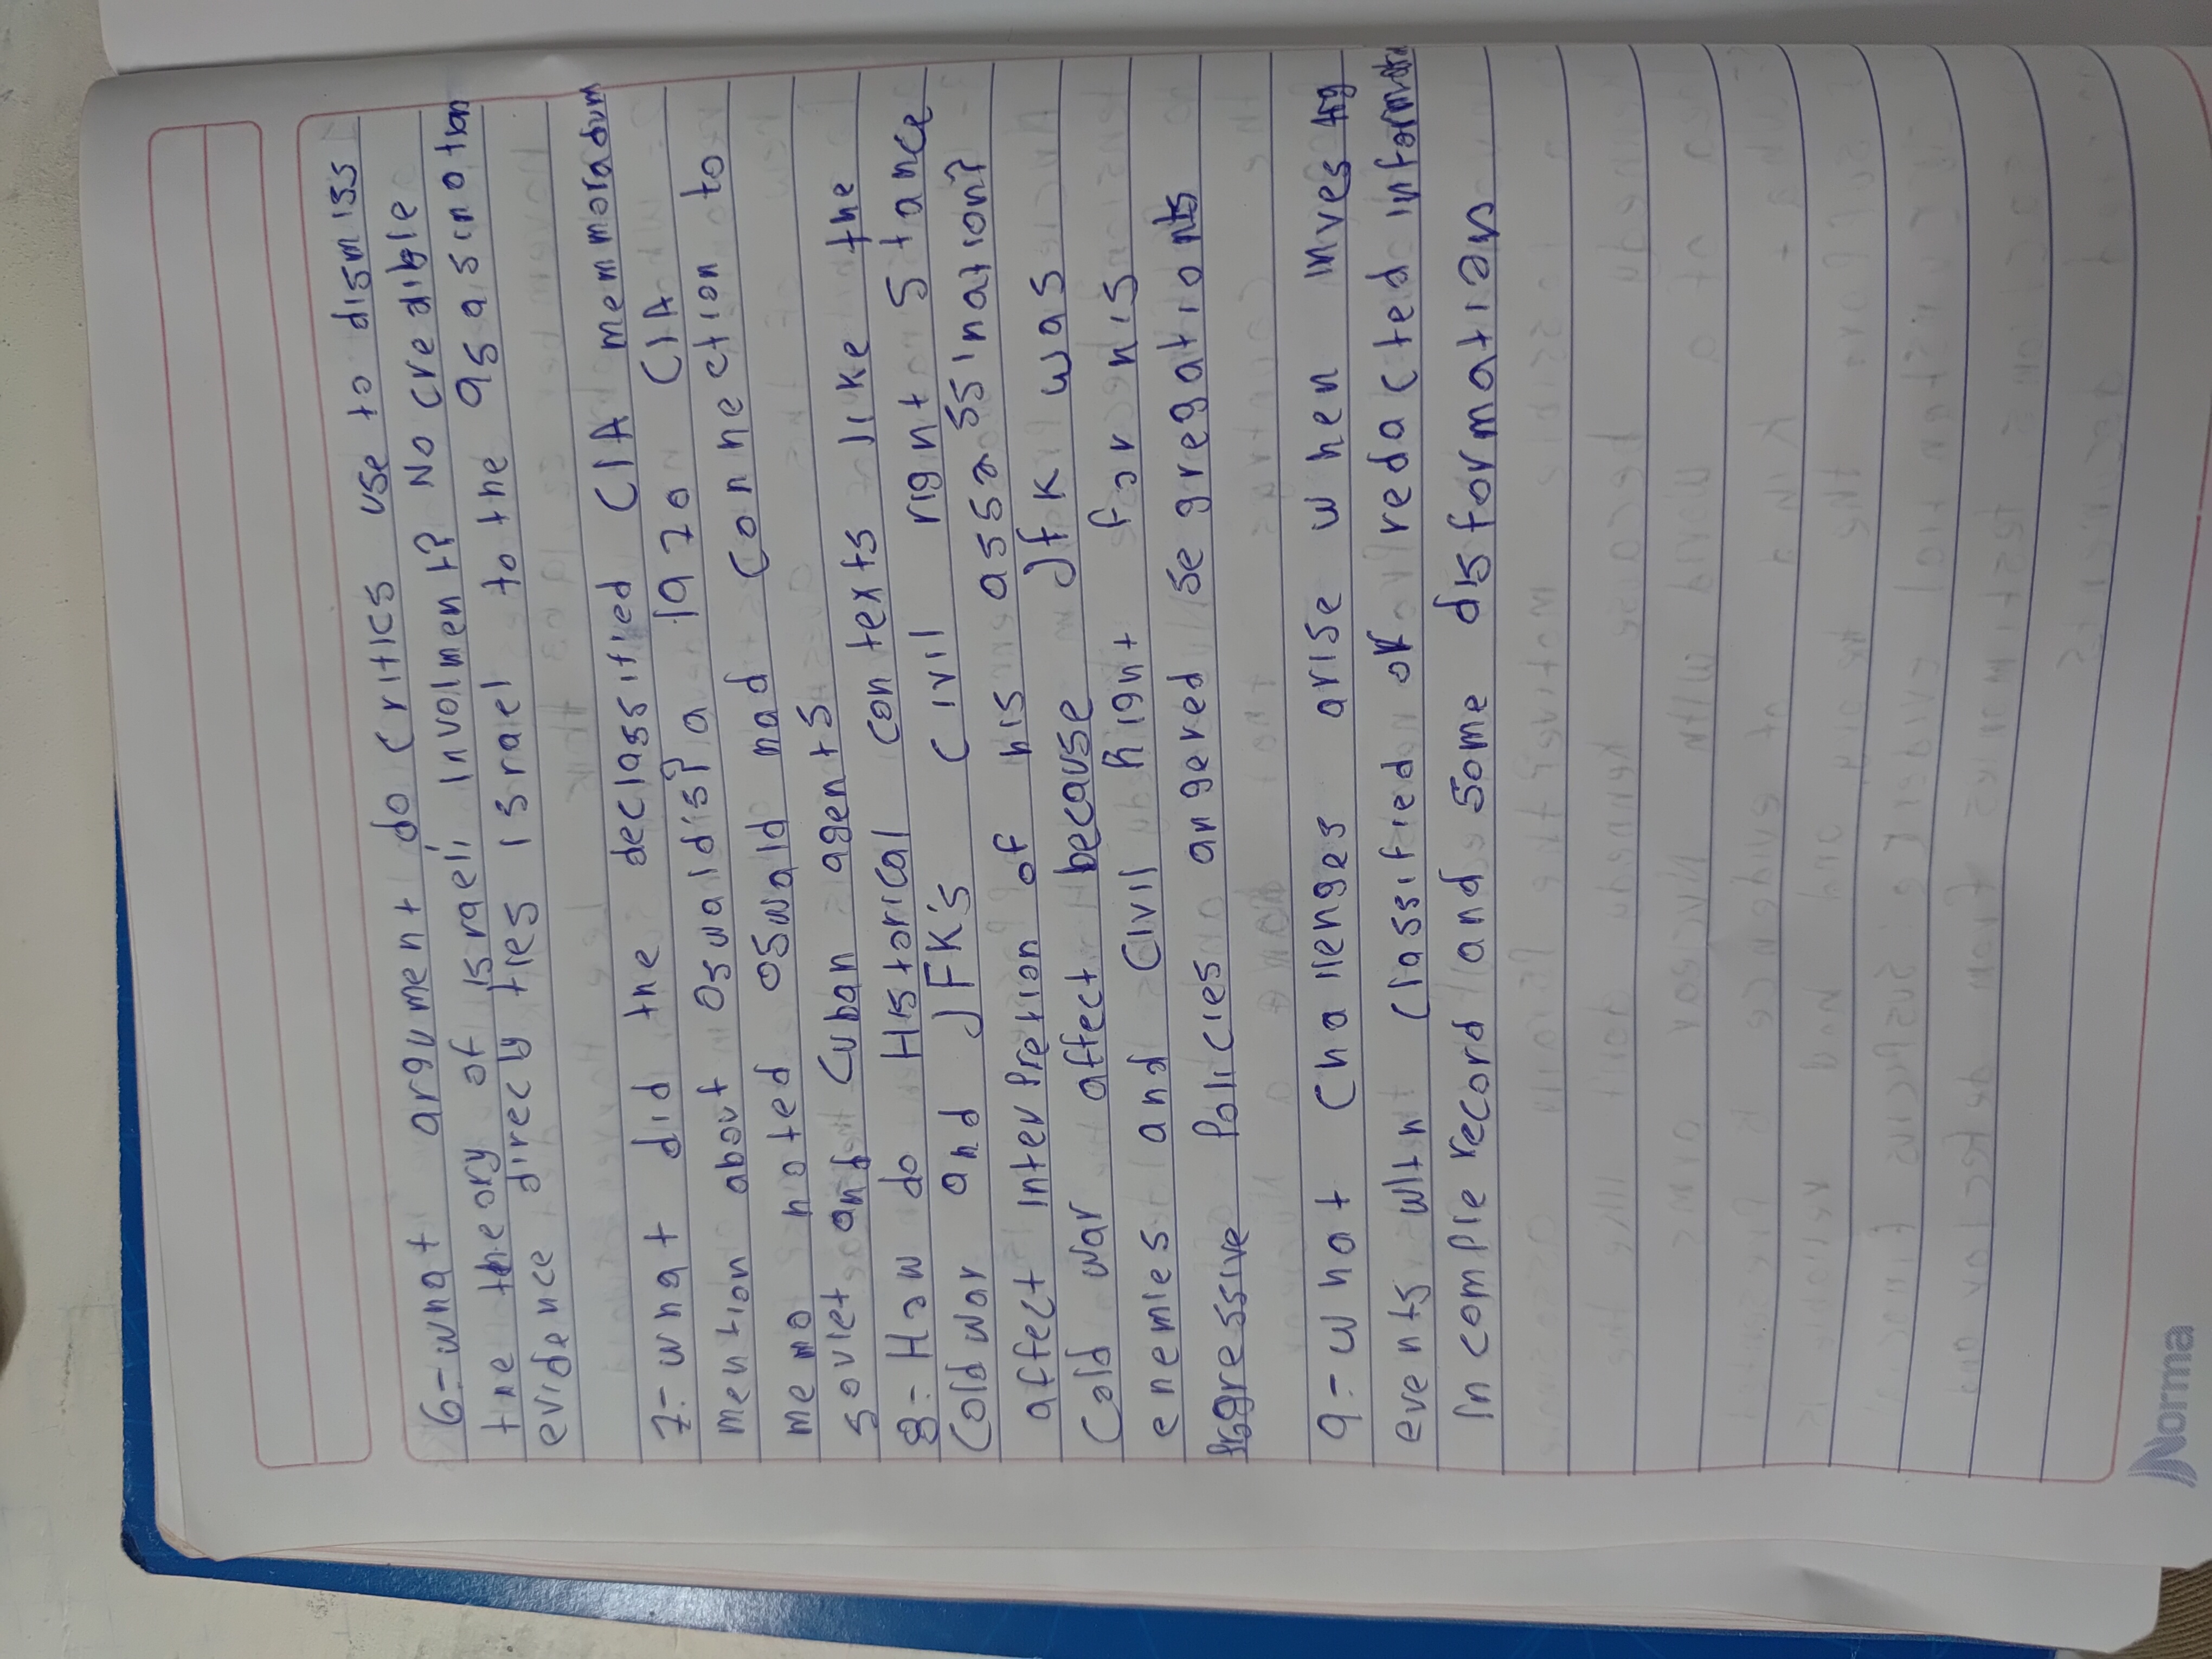 6-what argument do critics use to dismiss
the theory of israeli involment? No credible
evidence direcly ties israel to the asasinotion
7-what did the declassified CIA memmoradum
mention about oswaldis? a 1970 CIA
memo noted oswald had connection to
soviet and Cuban agents.
8-How do Historical contexts like the
Cold war and JFK's Civil right stance
affect interpretion of his assassination?
Cold war affect because Jfk was
enemies and Civil Right for his
Aggressive Policies angered segregationts
9-what Challenges arise when investig
events with classified or redacted information
Incomple record and some disformation
Norma